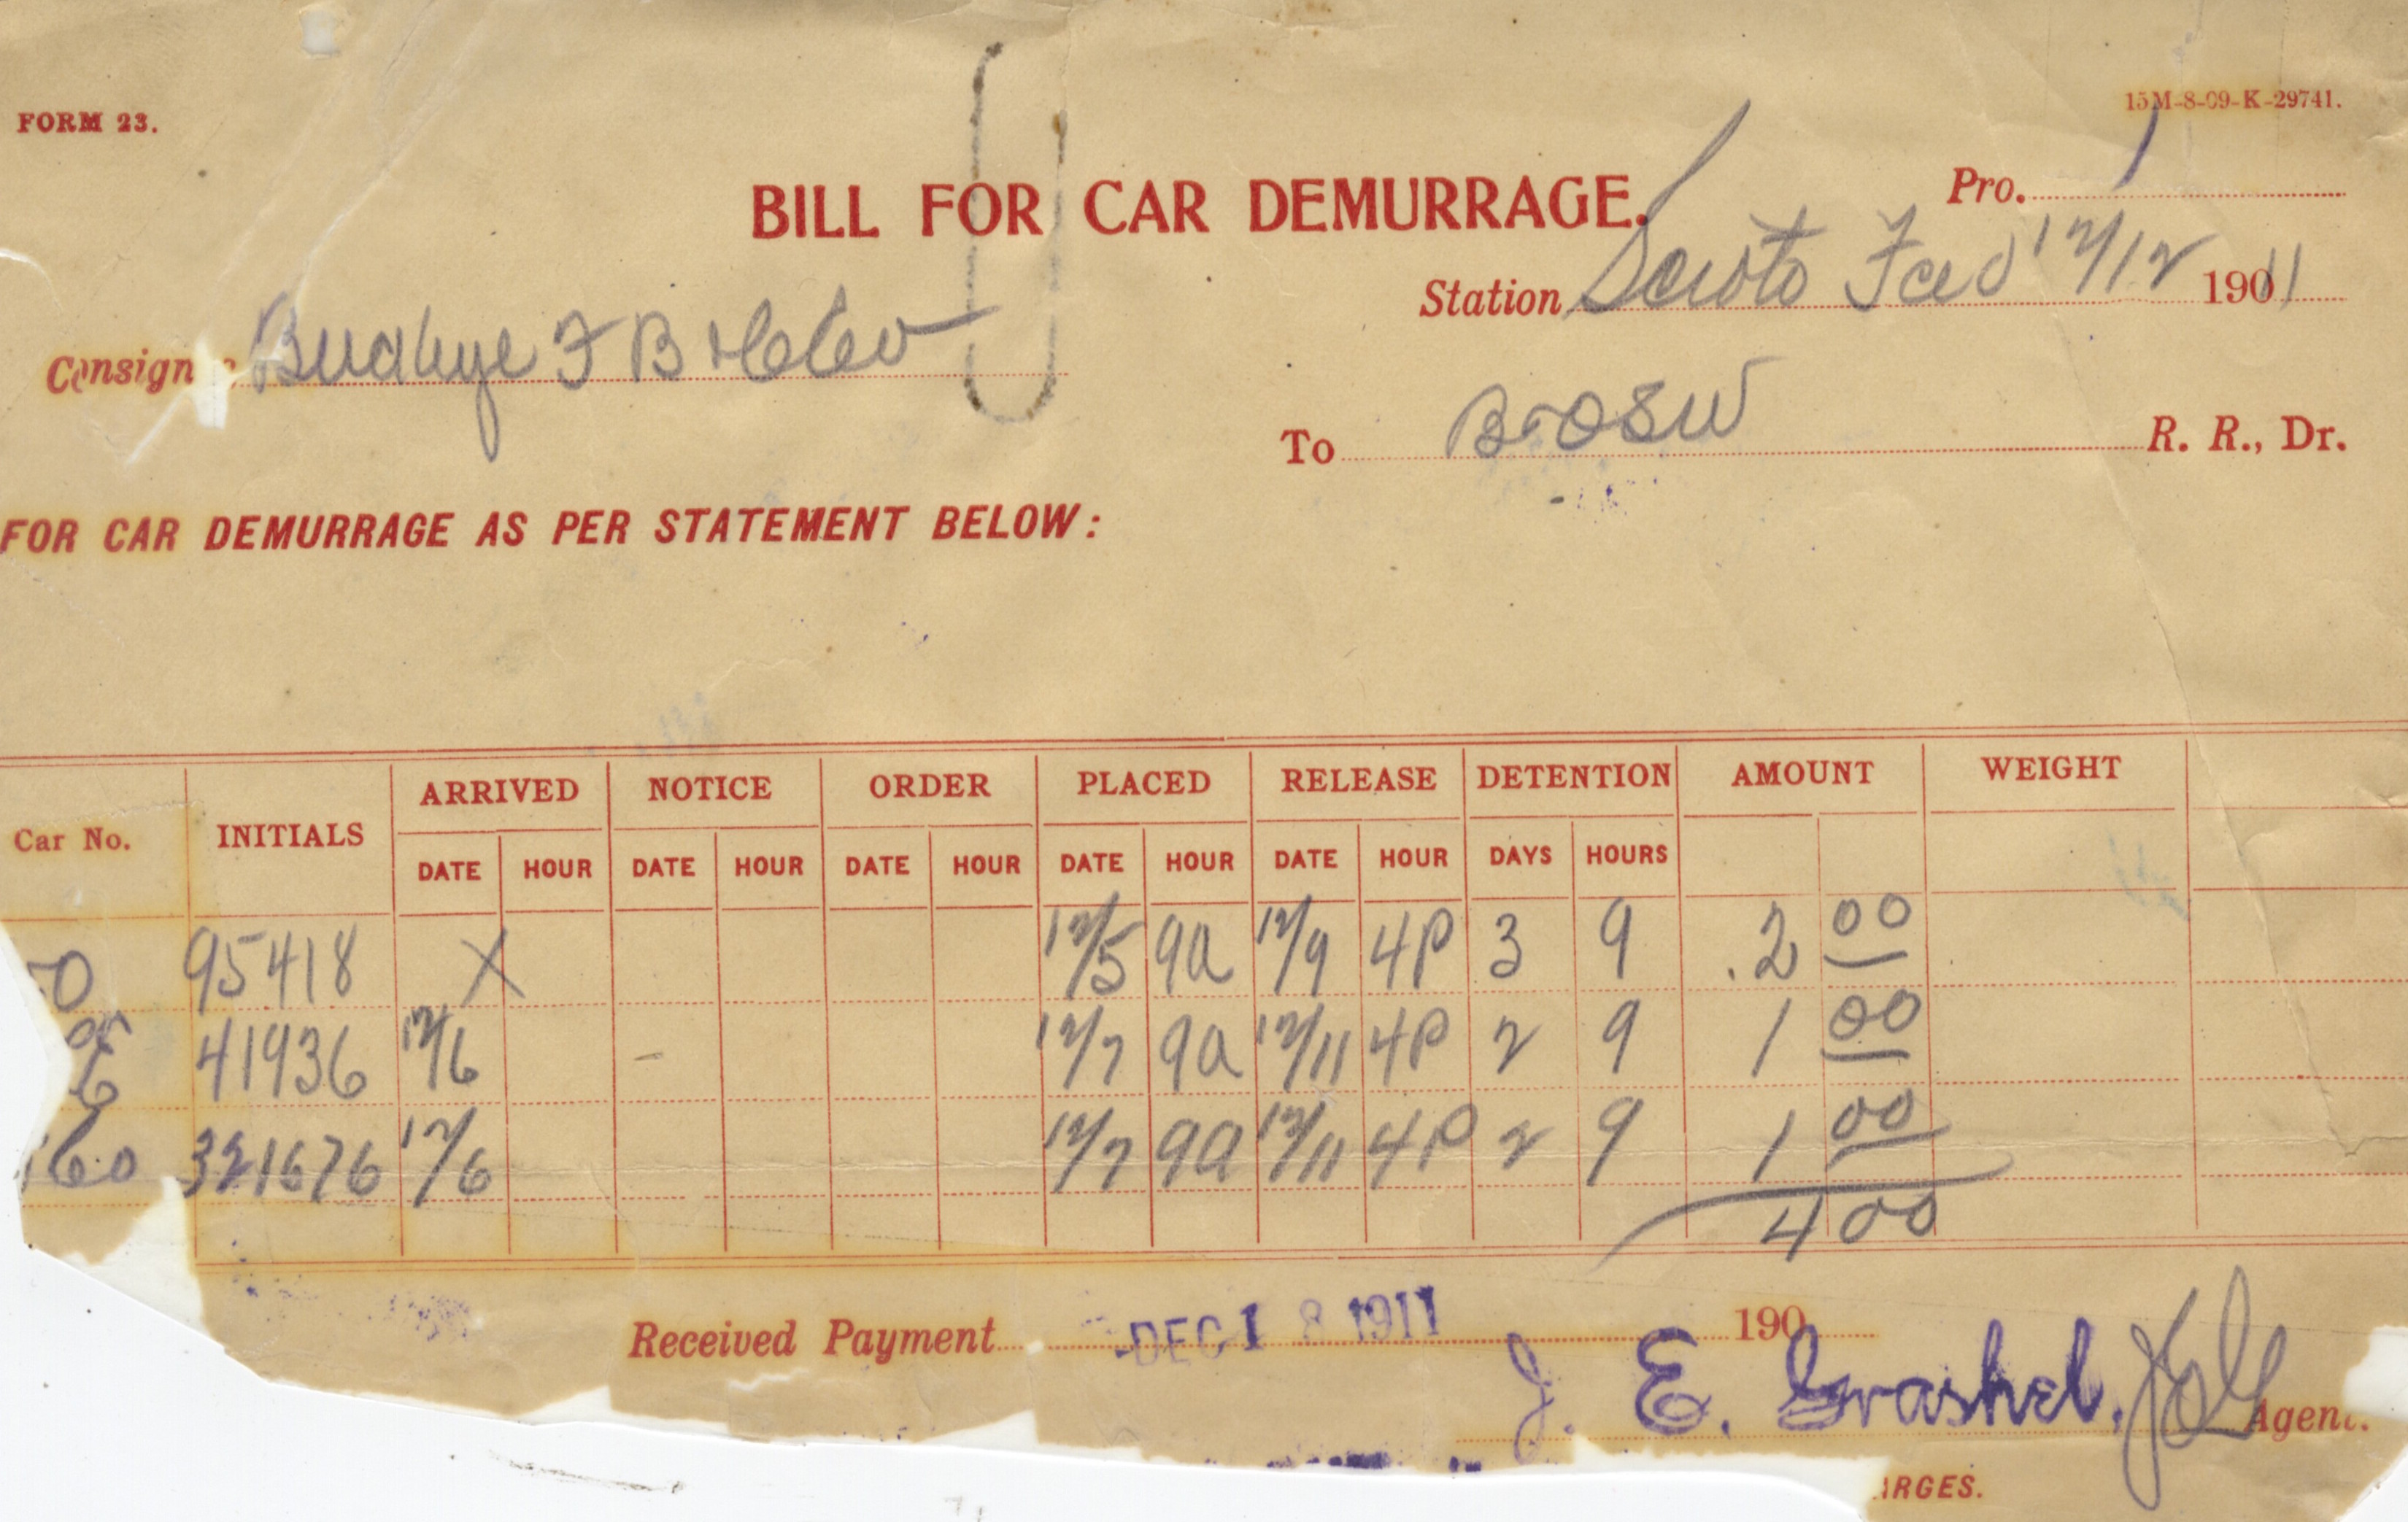 FORM 23.
15M-8-09-K-29741.
BILL FOR CAR DEMURRAGE.
Pro. 1
Station Scioto Fce 12/12 1911
Consign Buckeye F B & Co
To B&OSW R. R., Dr.
FOR CAR DEMURRAGE AS PER STATEMENT BELOW:
Car No. INITIALS ARRIVED NOTICE ORDER PLACED RELEASE DETENTION AMOUNT WEIGHT
DATE HOUR DATE HOUR DATE HOUR DATE HOUR DATE HOUR DAYS HOURS
0 95418 X 12/5 9a 12/9 4P 3 9 2 00
6 41936 12/6 - 12/7 9a 12/11 4P 2 9 1 00
160 321676 12/6 12/7 9a 12/11 4P 2 9 1 00
4 00
Received Payment DEC 18 1911 190
J. E. Grashel. Agent.
ARGES.